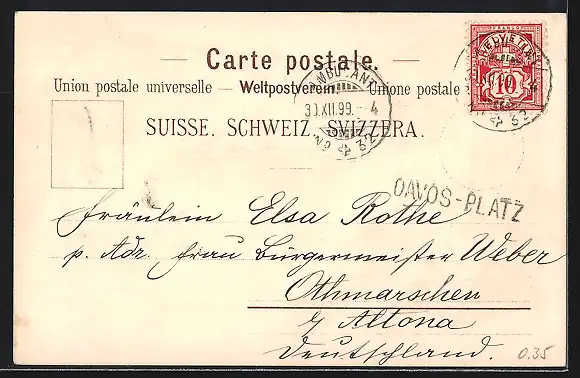 Carte postale.
Union postale universelle — Weltpostverein — Unione postale
SUISSE. SCHWEIZ. SVIZZERA.
HELVETIA
10
AMBULANT
30.XII.99. – 4
No 32
DAVOS-PLATZ
Fräulein Elsa Rothe
p. Adr. Frau Bürgermeister Weber
Othmarschen
Altona
Deutschland.
0.35